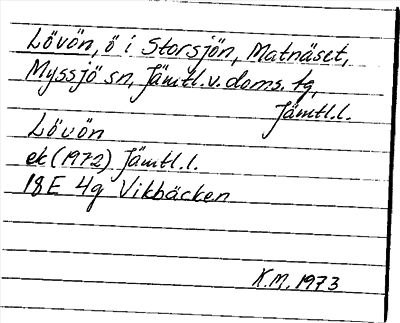 Lövön, ö i Storsjön, Matnäset,
Myssjö sn, Jämtl.v. doms. tg,
Jämtl.l.
Lövön
ek (1972) Jämtl.l.
18E 4g Vikbäcken
K.M. 1973